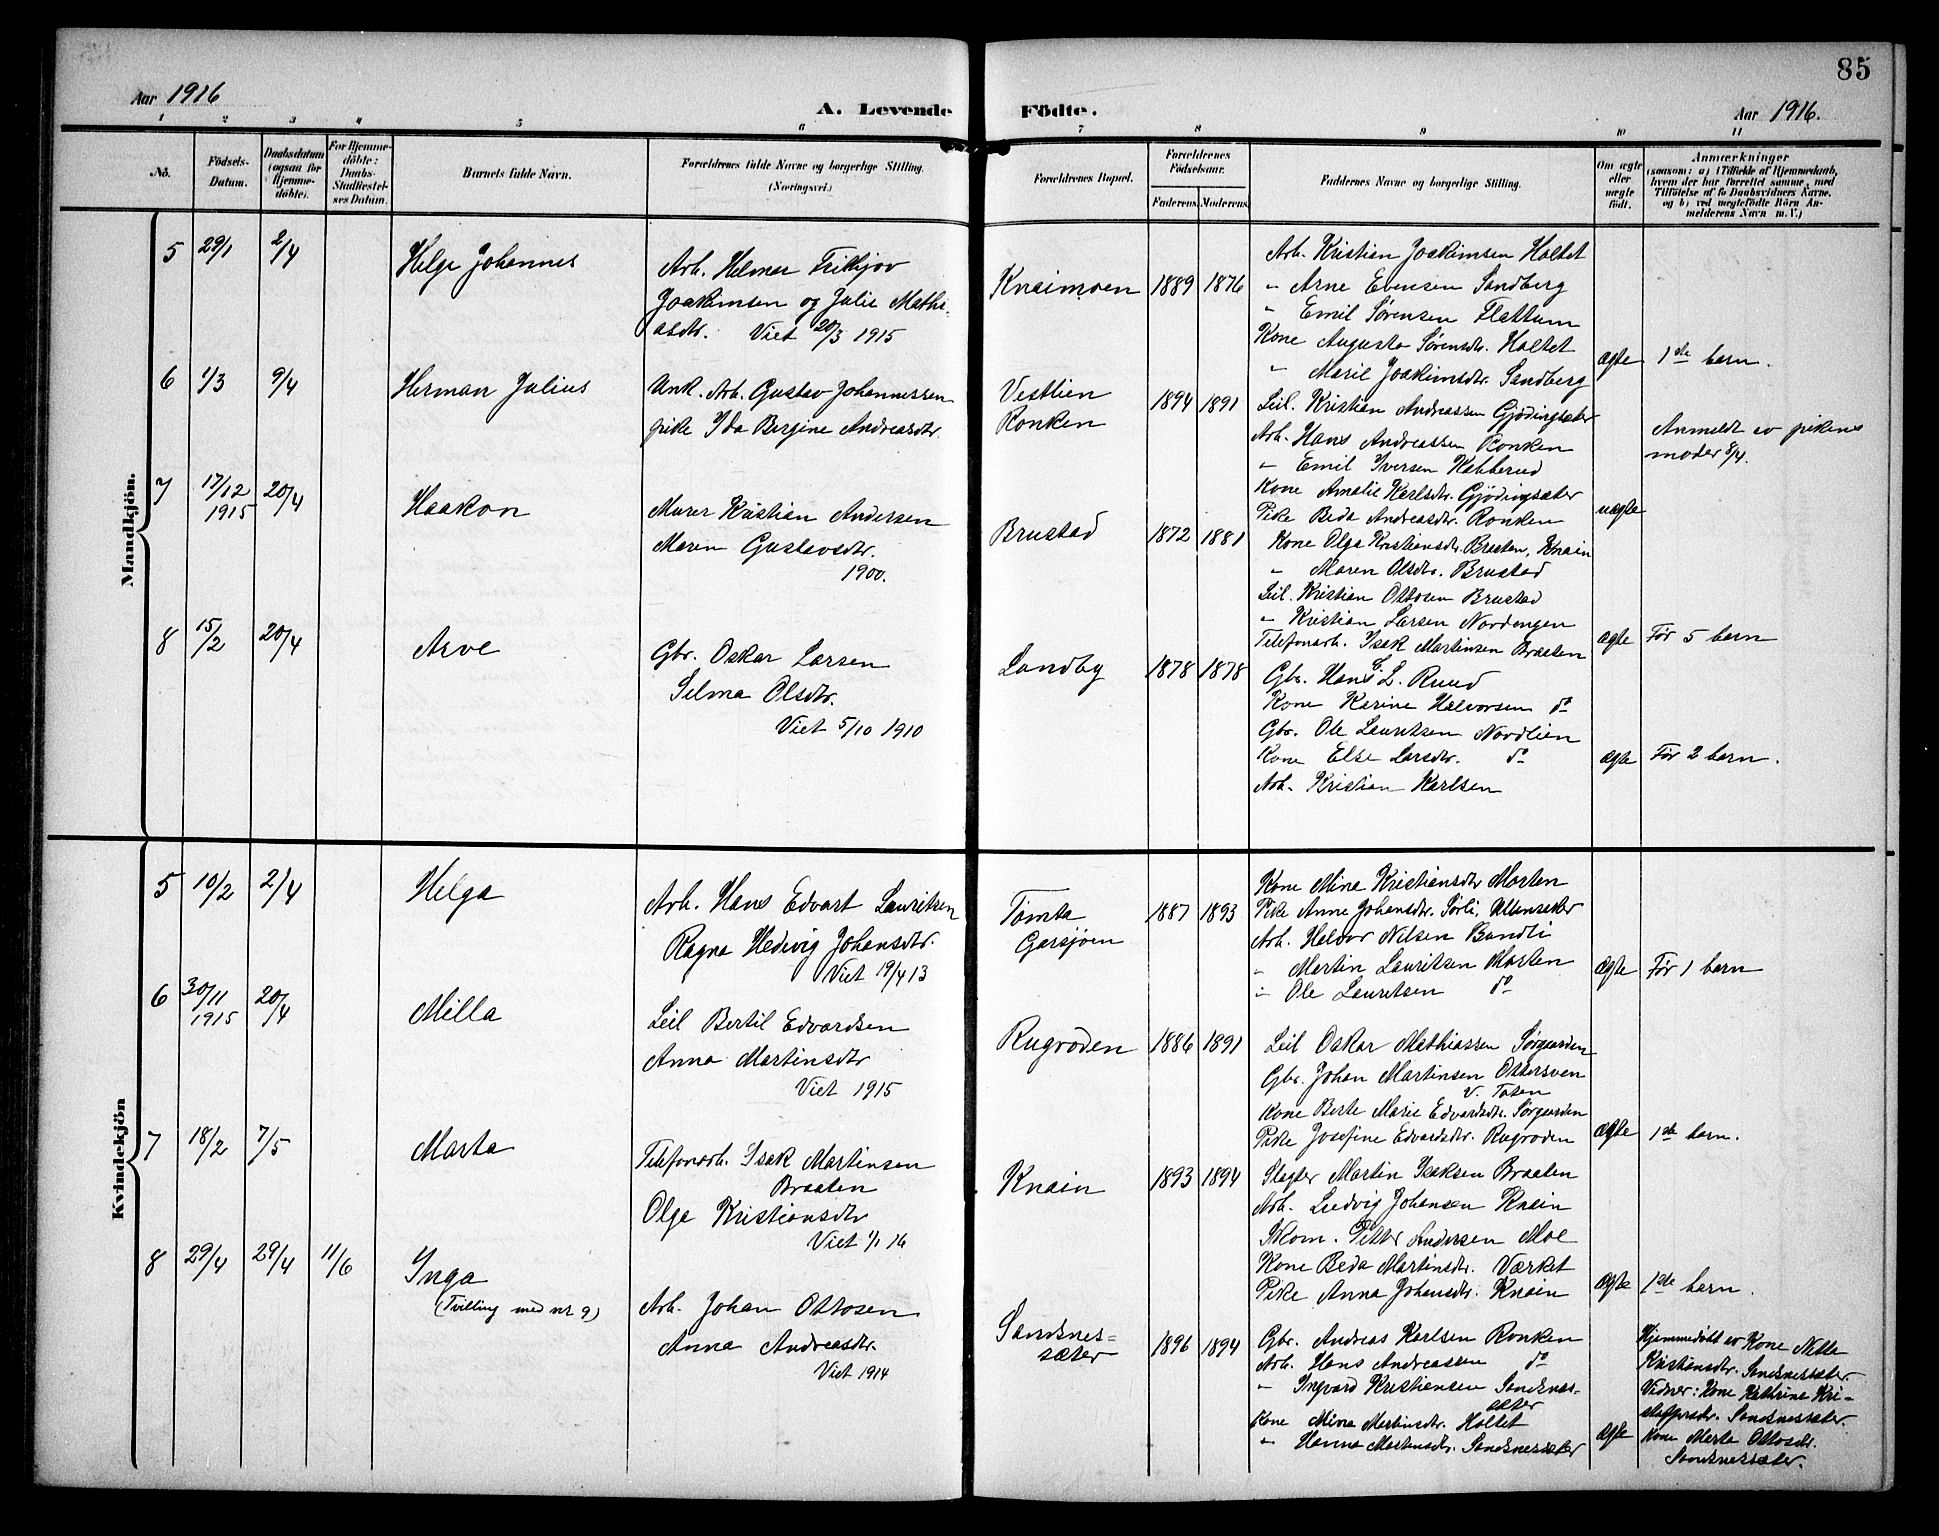 85
Aar 1916
A. Levende Födte.
Aar 1916.
1 2 3 4 5 6 7 8 9 10 11
No.
Födsels-
Datum.
Daabsdatum
(ogsaa for
Hjemme-
döbte).
For Hjemme-
döbte:
Daabs-
Stadfæstel-
ses Datum.
Barnets fulde Navn.
Forældrenes fulde Navne og borgerlige Stilling.
(Næringsvei.)
Forældrenes Bopæl.
Forældrenes
Födselsaar.
Faderens. Moderens.
Faddernes Navne og borgerlige Stilling.
Om ægte
eller
uægte
födt.
Anmærkninger
(saasom: a) i Tilfælde af Hjemmedaab,
hvem der har forrettet samme, med
Tilföielse af to Daabsvidners Navne.
og b) ved uægtefödte Börn An-
melderens Navn m. V.)
Mandkjön.
5 29/1 2/4
Helge Johannes
Arb. Helmer Frithjov
Joakimsen og Julie Mathi-
asdtr. Viet 20/3 1915
Knaimoen 1889 1876
Arb. Kristian Joakimsen Holtet
" Arne Evensen Sandberg
" Emil Sørensen Flattum
Kone Augusta Sørensdtr. Holtet
" Marie Joakimsdtr. Sandberg
ægte 1ste barn.
6 1/3 9/4
Herman Julius
Unk. Arb. Gustav Johannessen
pike Ida Bergine Andreasdtr.
Vestlien
Ronken
1894 1891
Leil. Kristian Andreassen Gjødingsæter
Arb. Hans Andreassen Ronken
" Emil Iversen Kabberud
Kone Amalie Karlsdtr. Gjødingsæter
Pike Beda Andreasdtr. Ronken
uægte
Anmeldt av pikens
moder 8/4.
7 17/12 1915 20/4
Haakon
Murer Kristian Andersen
Maren Gustavsdtr.
1900.
Brustad 1872 1881
Kone Olga Kristiansdtr. Braaten, Knain
" Maren Olsdtr. Brustad
Leil. Kristian Ottosen Brustad
" Kristian Larsen Nordengen
Telefonarb. Isak Martinsen Braaten
ægte Før 5 barn
8 15/2 20/4
Arve
Gbr. Oskar Larsen
Selma Olsdtr.
Viet 5/10 1910
Landby 1878 1878
Gbr. Hans L. Ruud
Kone Karine Halvorsen do
Gbr. Ole Lauritsen Nordlien
Kone Else Larsdtr. do
Arb. Kristian Karlsen
ægte Før 2 barn.
Kvindekjön
5 10/2 2/4
Helga
Arb. Hans Edvart Lauritsen
Ragna Hedvig Johansdtr.
Viet 19/4 13
Tømta
Garsjøen
1887 1893
Kone Mina Kristiansdtr Morten
Pike Anne Johansdtr. Sørli, Ullensaker
Arb. Halvor Nilsen Bundli
" Martin Lauritsen Morten
" Ole Lauritsen do
ægte Før 1 barn
6 30/11 1915 20/4
Milla
Leil Bertil Edvardsen
Anna Martinsdtr
Viet 1915
Rugroden 1886 1891
Leil Oskar Mathiassen Sørgarden
Gbr. Johan Martinsen Ottersven
V. Toten
Kone Berte Marie Edvardsdtr. Sørgarden
Pike Josefine Edvardsdtr. Rugroden
ægte 1ste barn.
7 18/2 7/5
Marta
Telefonarb. Isak Martinsen
Braaten
Olga Kristiansdtr
Viet 1/1 16
Knain 1893 1894
Slagter Martin Isaksen Braaten
Arb. Ludvig Johansen Knain
Skom. Petter Andersen Moe
Kone Beda Martinsdtr. Værket
Pike Anna Johansdtr. Knain
ægte 1ste barn.
8 29/4 29/4 11/6
Inga
(Tvilling med nr 9)
Arb. Johan Ottosen
Anna Andreasdtr.
Viet 1914
Sandsnes-
sæter
1896 1894
Gbr. Andreas Karlsen Ronken
Arb. Hans Andreassen do
" Ingvard Kristiansen Sandsnes-
sæter
Kone Mina Martinsdtr. Holtet
" Hanna Martensdtr. Sandsnessæter
ægte
Hjemmedøbt av Kone Nille
Kristiansdtr. Sandsnessæter
Vidner: Kone Kathrine Kri-
stoffersdtr. Sandsnessæter.
Kone Marte Ottosdtr.
Sandsnessæter.